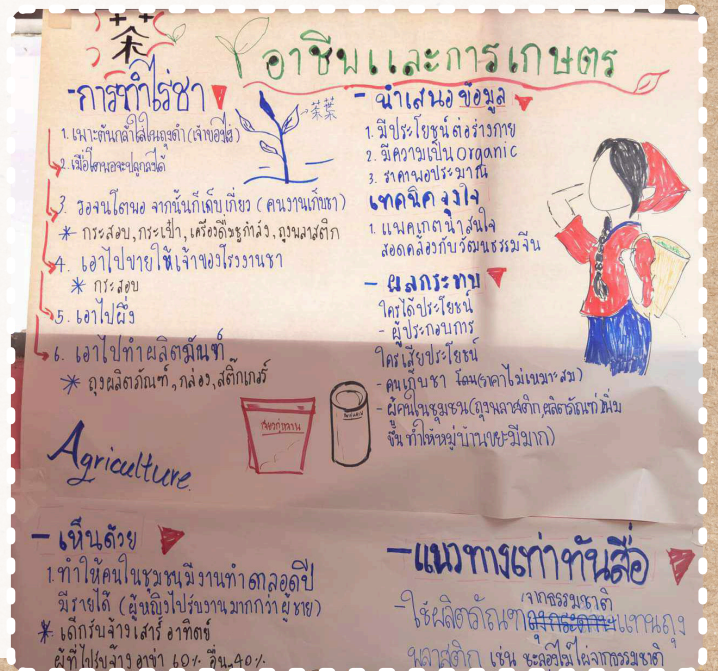 茶
อาชีพและการเกษตร
-การทำไร่ชา
1. เพาะต้นกล้าใส่ในถุงดำ (เจ้าของไร่)
2. เมื่อโตพอจะปลูกลงได้
3. รอจนโตพอ จากนั้นก็เก็บเกี่ยว (คนงานเก็บชา)
* กระสอบ, กระเป๋า, เครื่องดื่มชูกำลัง, ถุงพลาสติก
4. เอาไปขายให้เจ้าของโรงงานชา
* กระสอบ
5. เอาไปผึ่ง
6. เอาไปทำผลิตภัณฑ์
* ถุงผลิตภัณฑ์, กล่อง, สติ๊กเกอร์
茶葉
- นำเสนอข้อมูล
1. มีประโยชน์ต่อร่างกาย
2. มีความเป็น Organic
3. ราคาพอประมาณ
เทคนิคจูงใจ
1. แพคเกตน่าสนใจ
สอดคล้องกับวัฒนธรรมจีน
- ผลกระทบ
ใครได้ประโยชน์
- ผู้ประกอบการ
ใครเสียประโยชน์
- คนเก็บชา โดน(ราคาไม่เหมาะสม)
- ผู้คนในชุมชน(ถุงพลาสติก,ผลิตภัณฑ์)เพิ่ม
ขึ้น ทำให้หมู่บ้านขยะมีมาก)
Agriculture.
- เห็นด้วย
1. ทำให้คนในชุมชนมีงานทำตลอดปี
มีรายได้ (ผู้หญิงไปรับงานมากกว่าผู้ชาย)
* เด็กรับจ้างเสาร์ อาทิตย์
ผู้ที่ไปรับจ้าง อาข่า 60% อื่นๆ 40%
-แนวทางเท่าทันสื่อ
จากธรรมชาติ
-ใช้ผลิตภัณฑ์ถุงกระดาษแทนถุง
พลาสติก เช่น ชะลอมไม้ไผ่จากธรรมชาติ